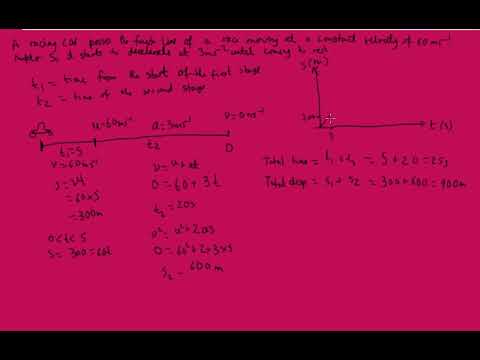 A racing car passes the finish line of a race moving at a constant velocity of 60ms⁻¹
After 5s it starts to decelerate at 3ms⁻² until coming to rest
t₁ = time from the start of the first stage
t₂ = time of the second stage
u=60ms⁻¹ a=3ms⁻² v=0ms⁻¹
t₁=5 t₂ 0
v=60ms⁻¹
s=vt
=60×5
=300m
0<t<5
s=300=60t
v=u+at
0=60+3t
t₂=20s
v²=u²+2as
0=60²+2×3×s
s₂=600m
s(m)
300
5
t(s)
Total time = t₁+t₂ = 5+20=25s
Total disp = s₁+s₂ = 300+600=900m